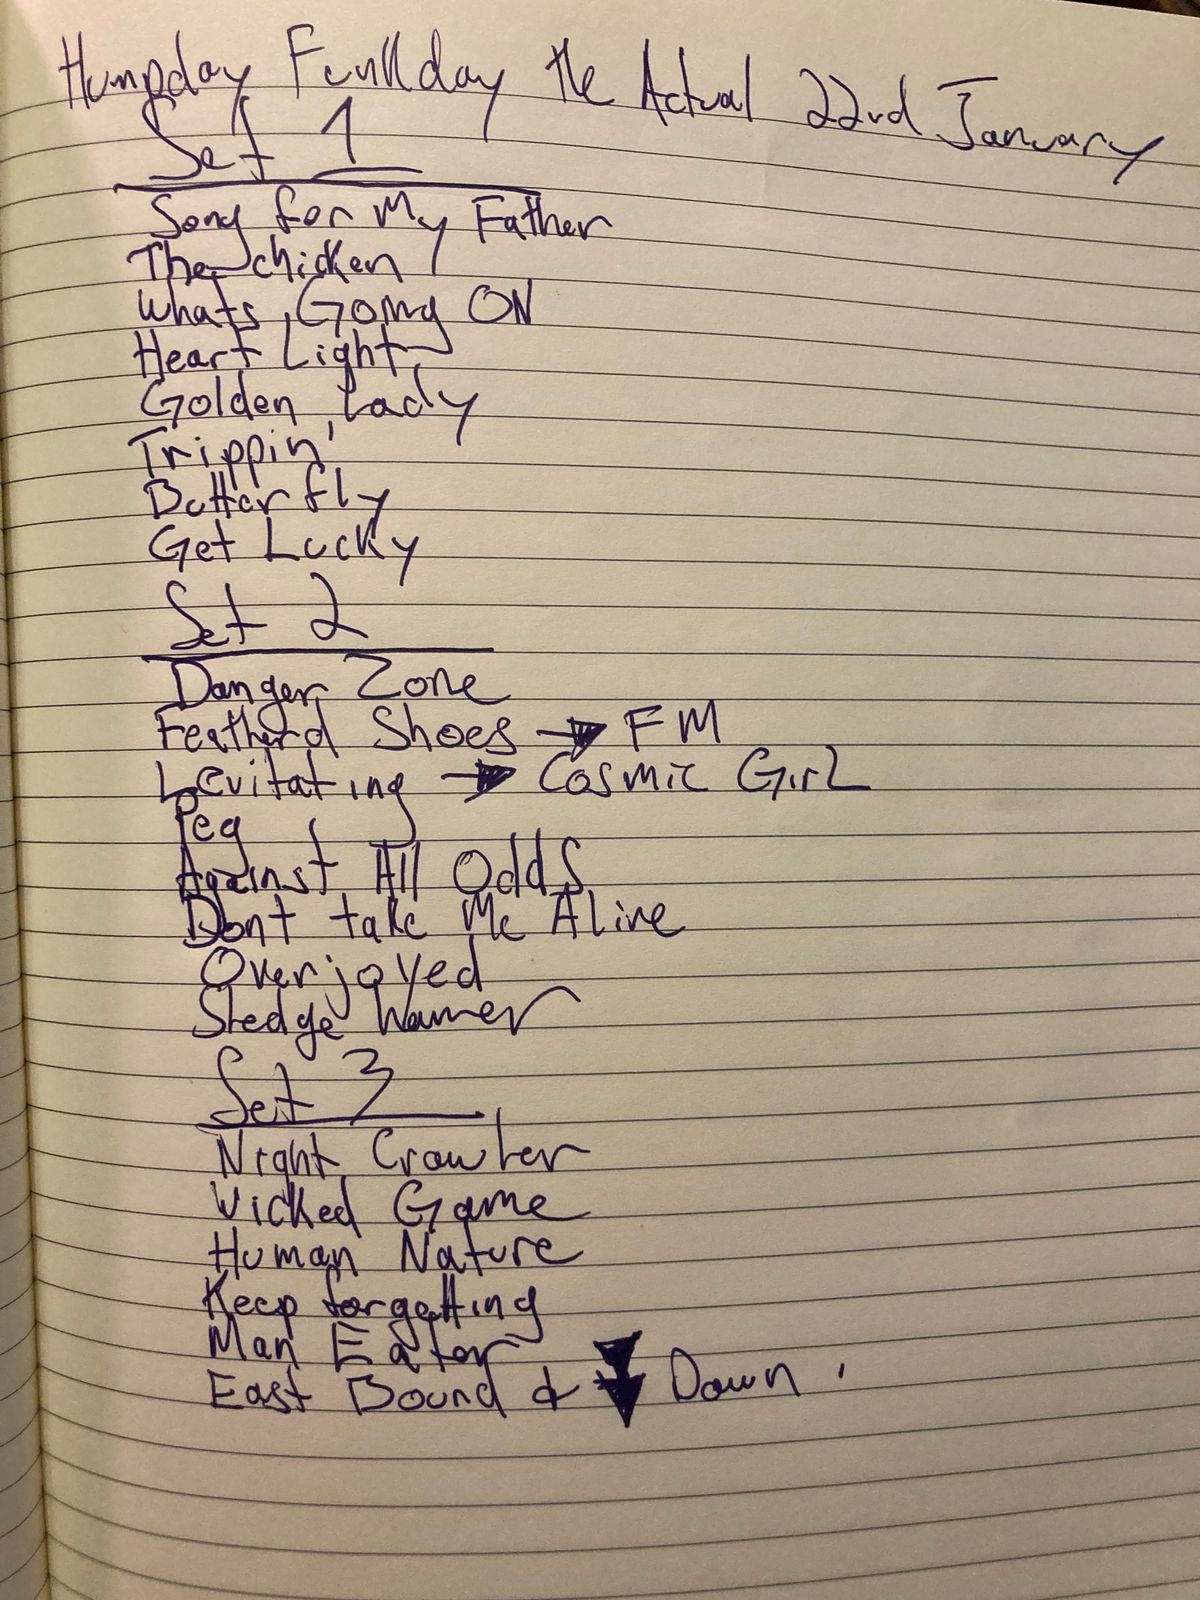 Humpday Funkday the Actual 22nd January
Set 1
Song for My Father
The chicken
Whats Going ON
Heart Light
Golden Lady
Trippin'
Butterfly
Get Lucky
Set 2
Danger Zone
Featherd Shoes → FM
Levitating → Cosmic Girl
Peg
Against All Odds
Dont take Me Alive
Overjoyed
Sledge Hammer
Set 3
Night Crawler
Wicked Game
Human Nature
Keep forgetting
Man Eater
East Bound & Down